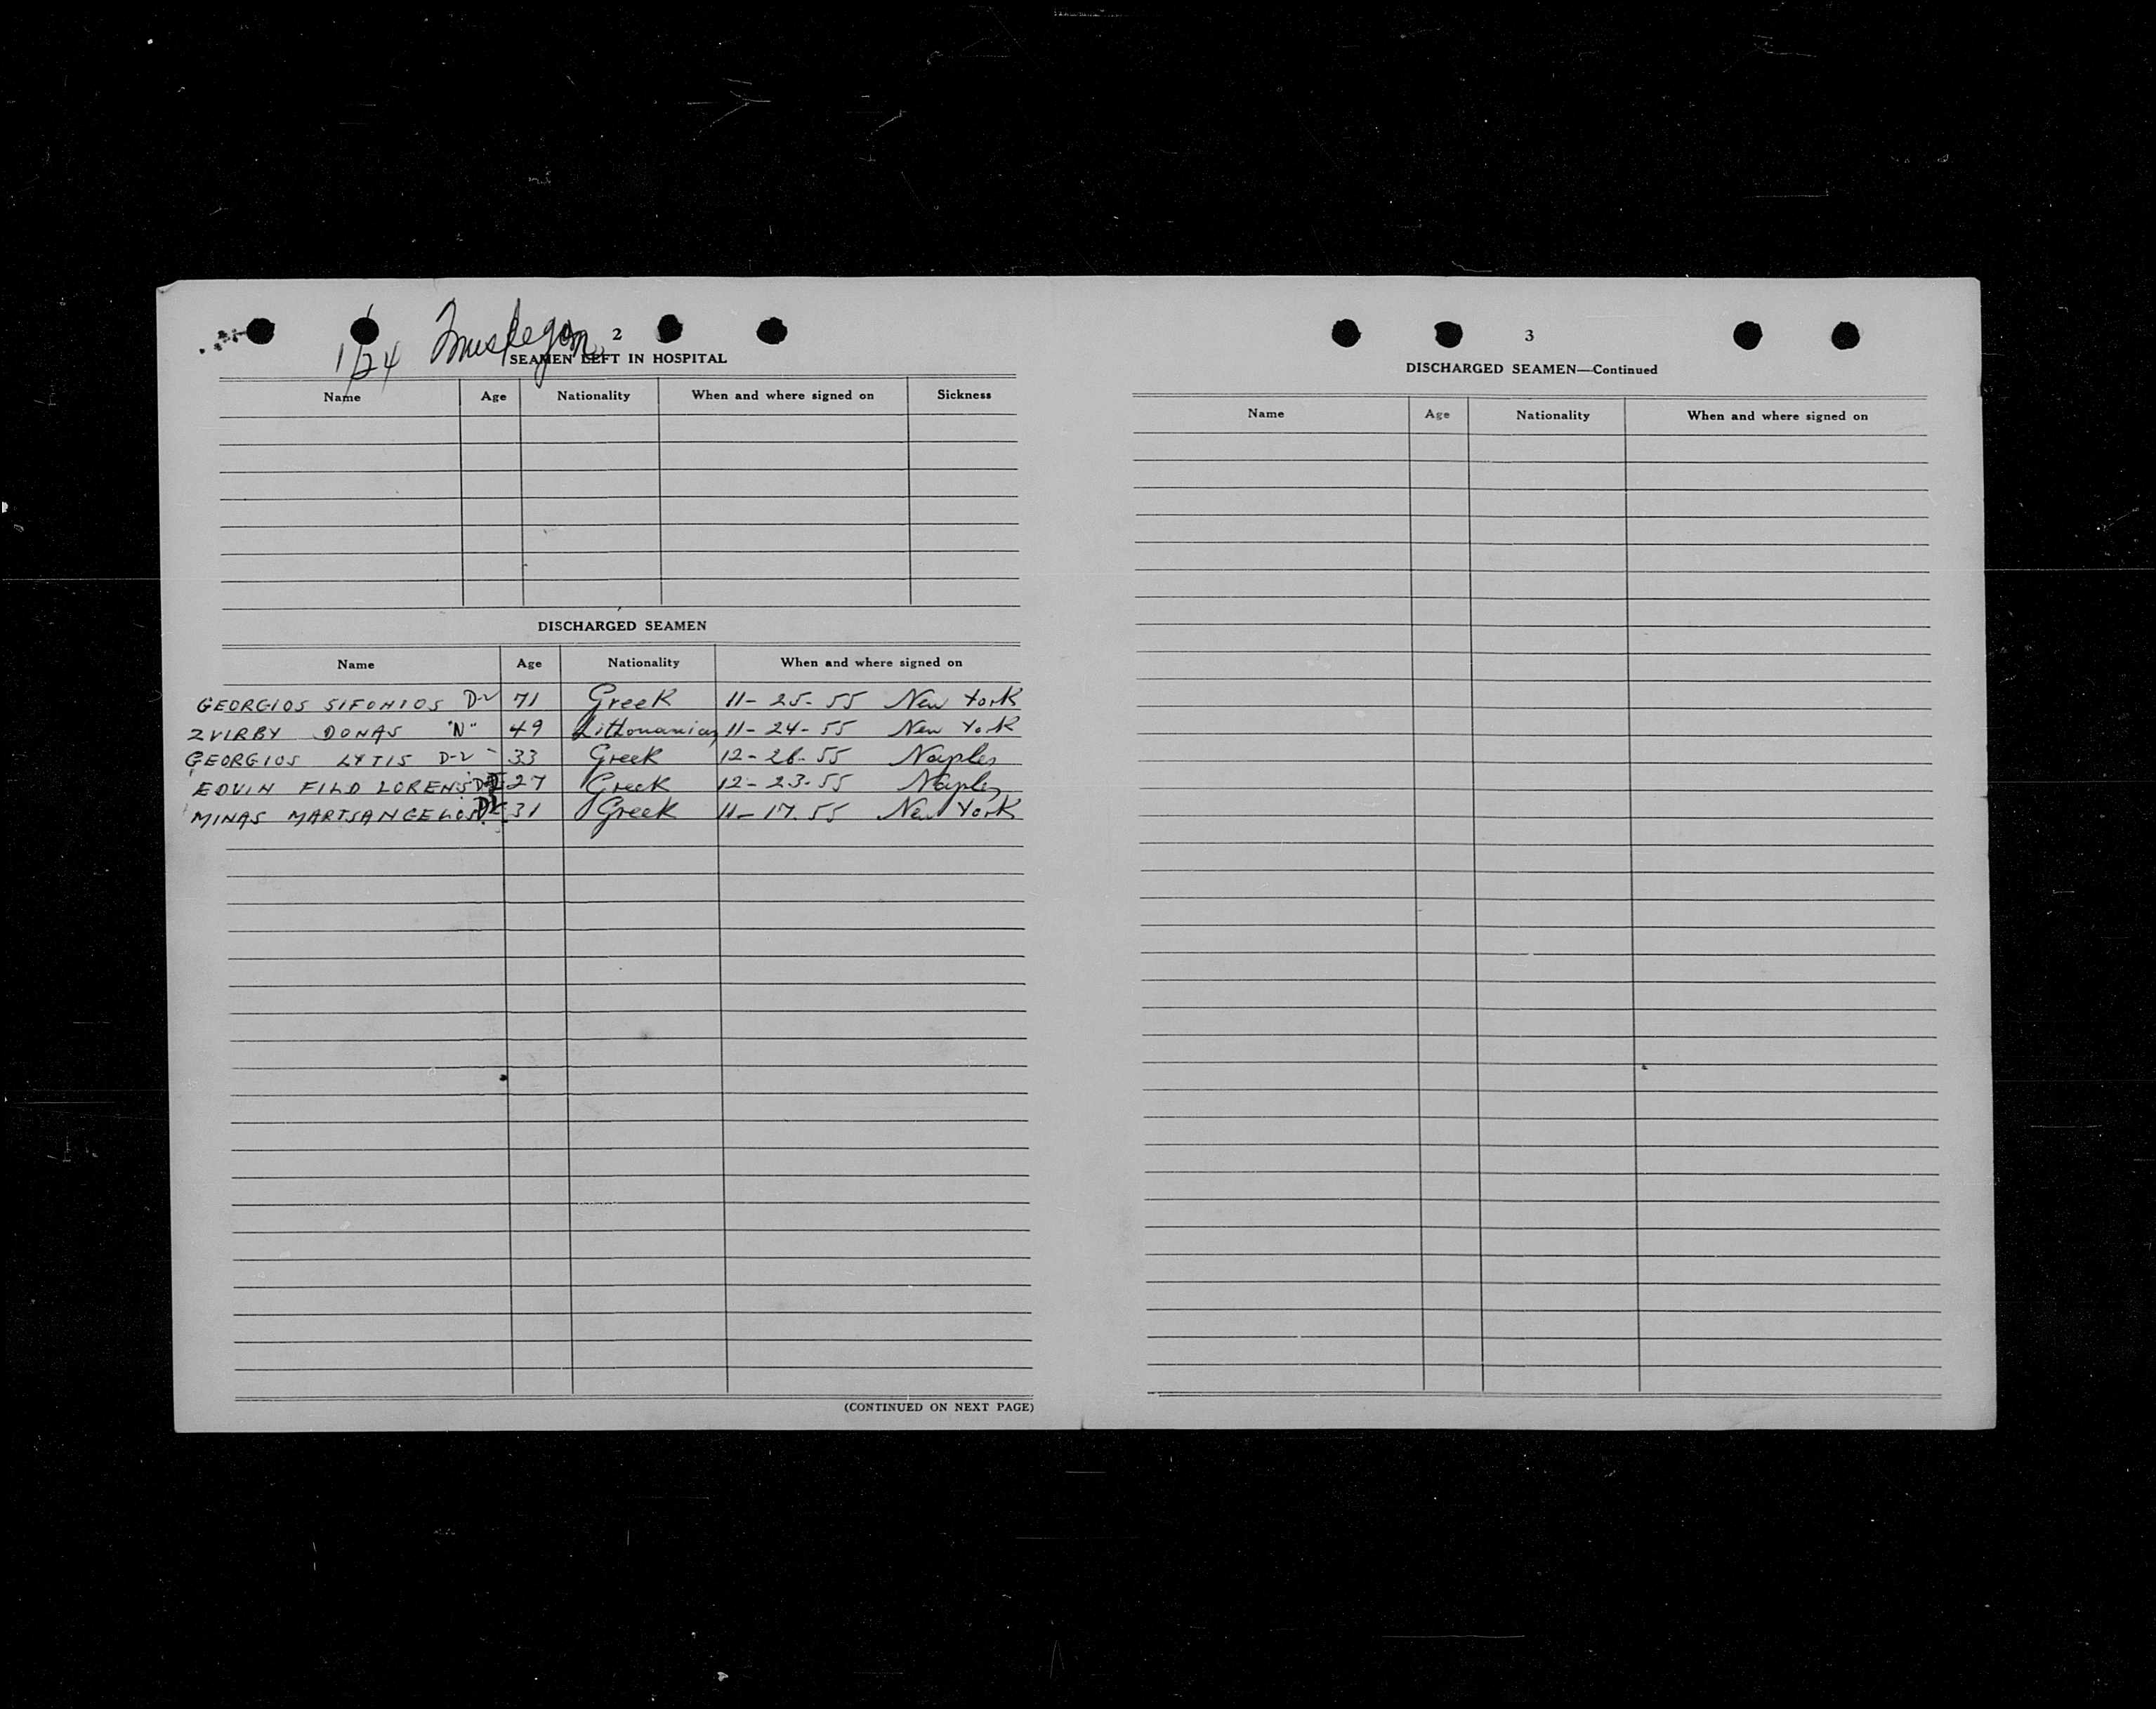 1/24 Muskegon
2
SEAMEN LEFT IN HOSPITAL
Name Age Nationality When and where signed on Sickness
DISCHARGED SEAMEN
Name Age Nationality When and where signed on
GEORGIOS SIFONIOS D-2 71 Greek 11-25-55 New York
ZVIRBY DONAS "N" 49 Lithouanian 11-24-55 New York
GEORGIOS LYTIS D-2 33 Greek 12-26-55 Naples
EDVIN FILD LORENS 27 Greek 12-23-55 Naples
MINAS MARTSANGELOS 31 Greek 11-17.55 New York
(CONTINUED ON NEXT PAGE)
3
DISCHARGED SEAMEN—Continued
Name Age Nationality When and where signed on